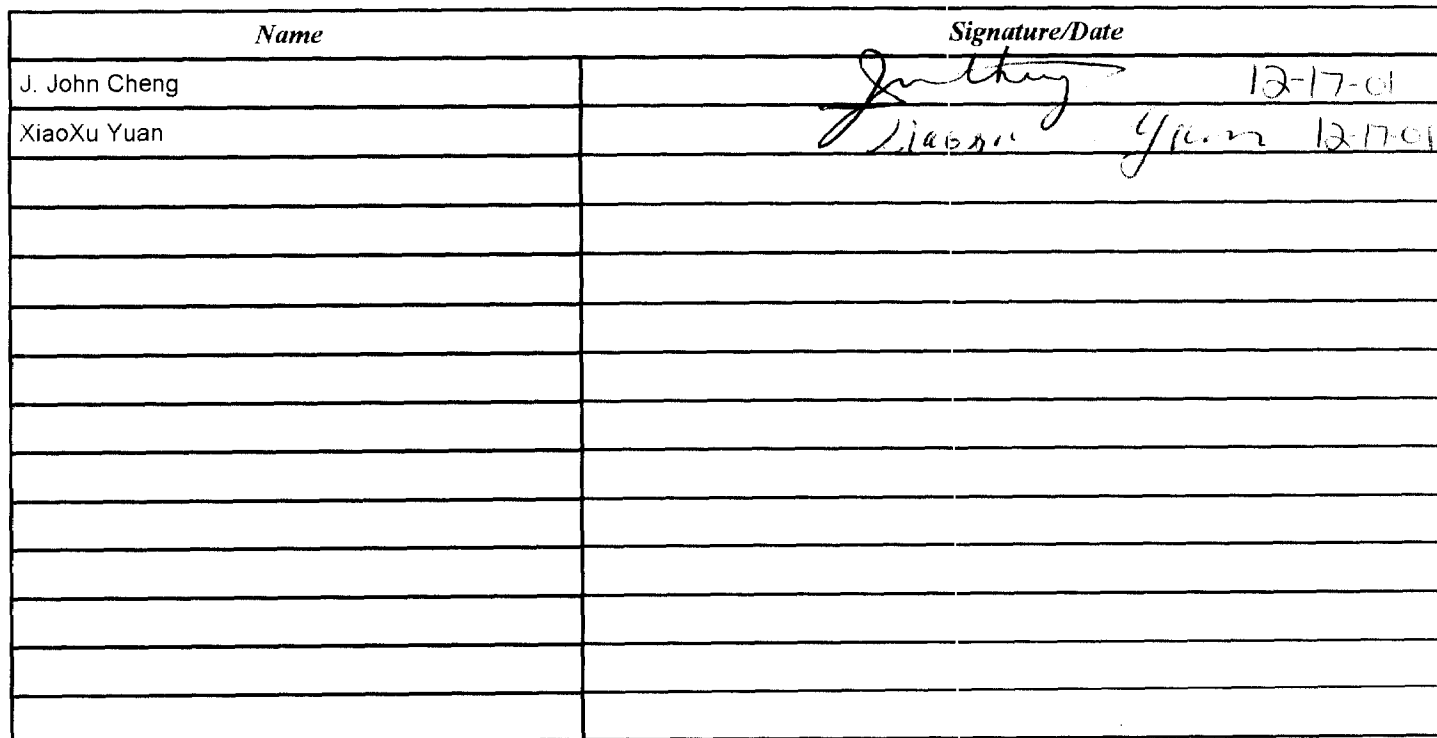 Name Signature/Date
J. John Cheng 12-17-01
XiaoXu Yuan Yuan 12-17-01